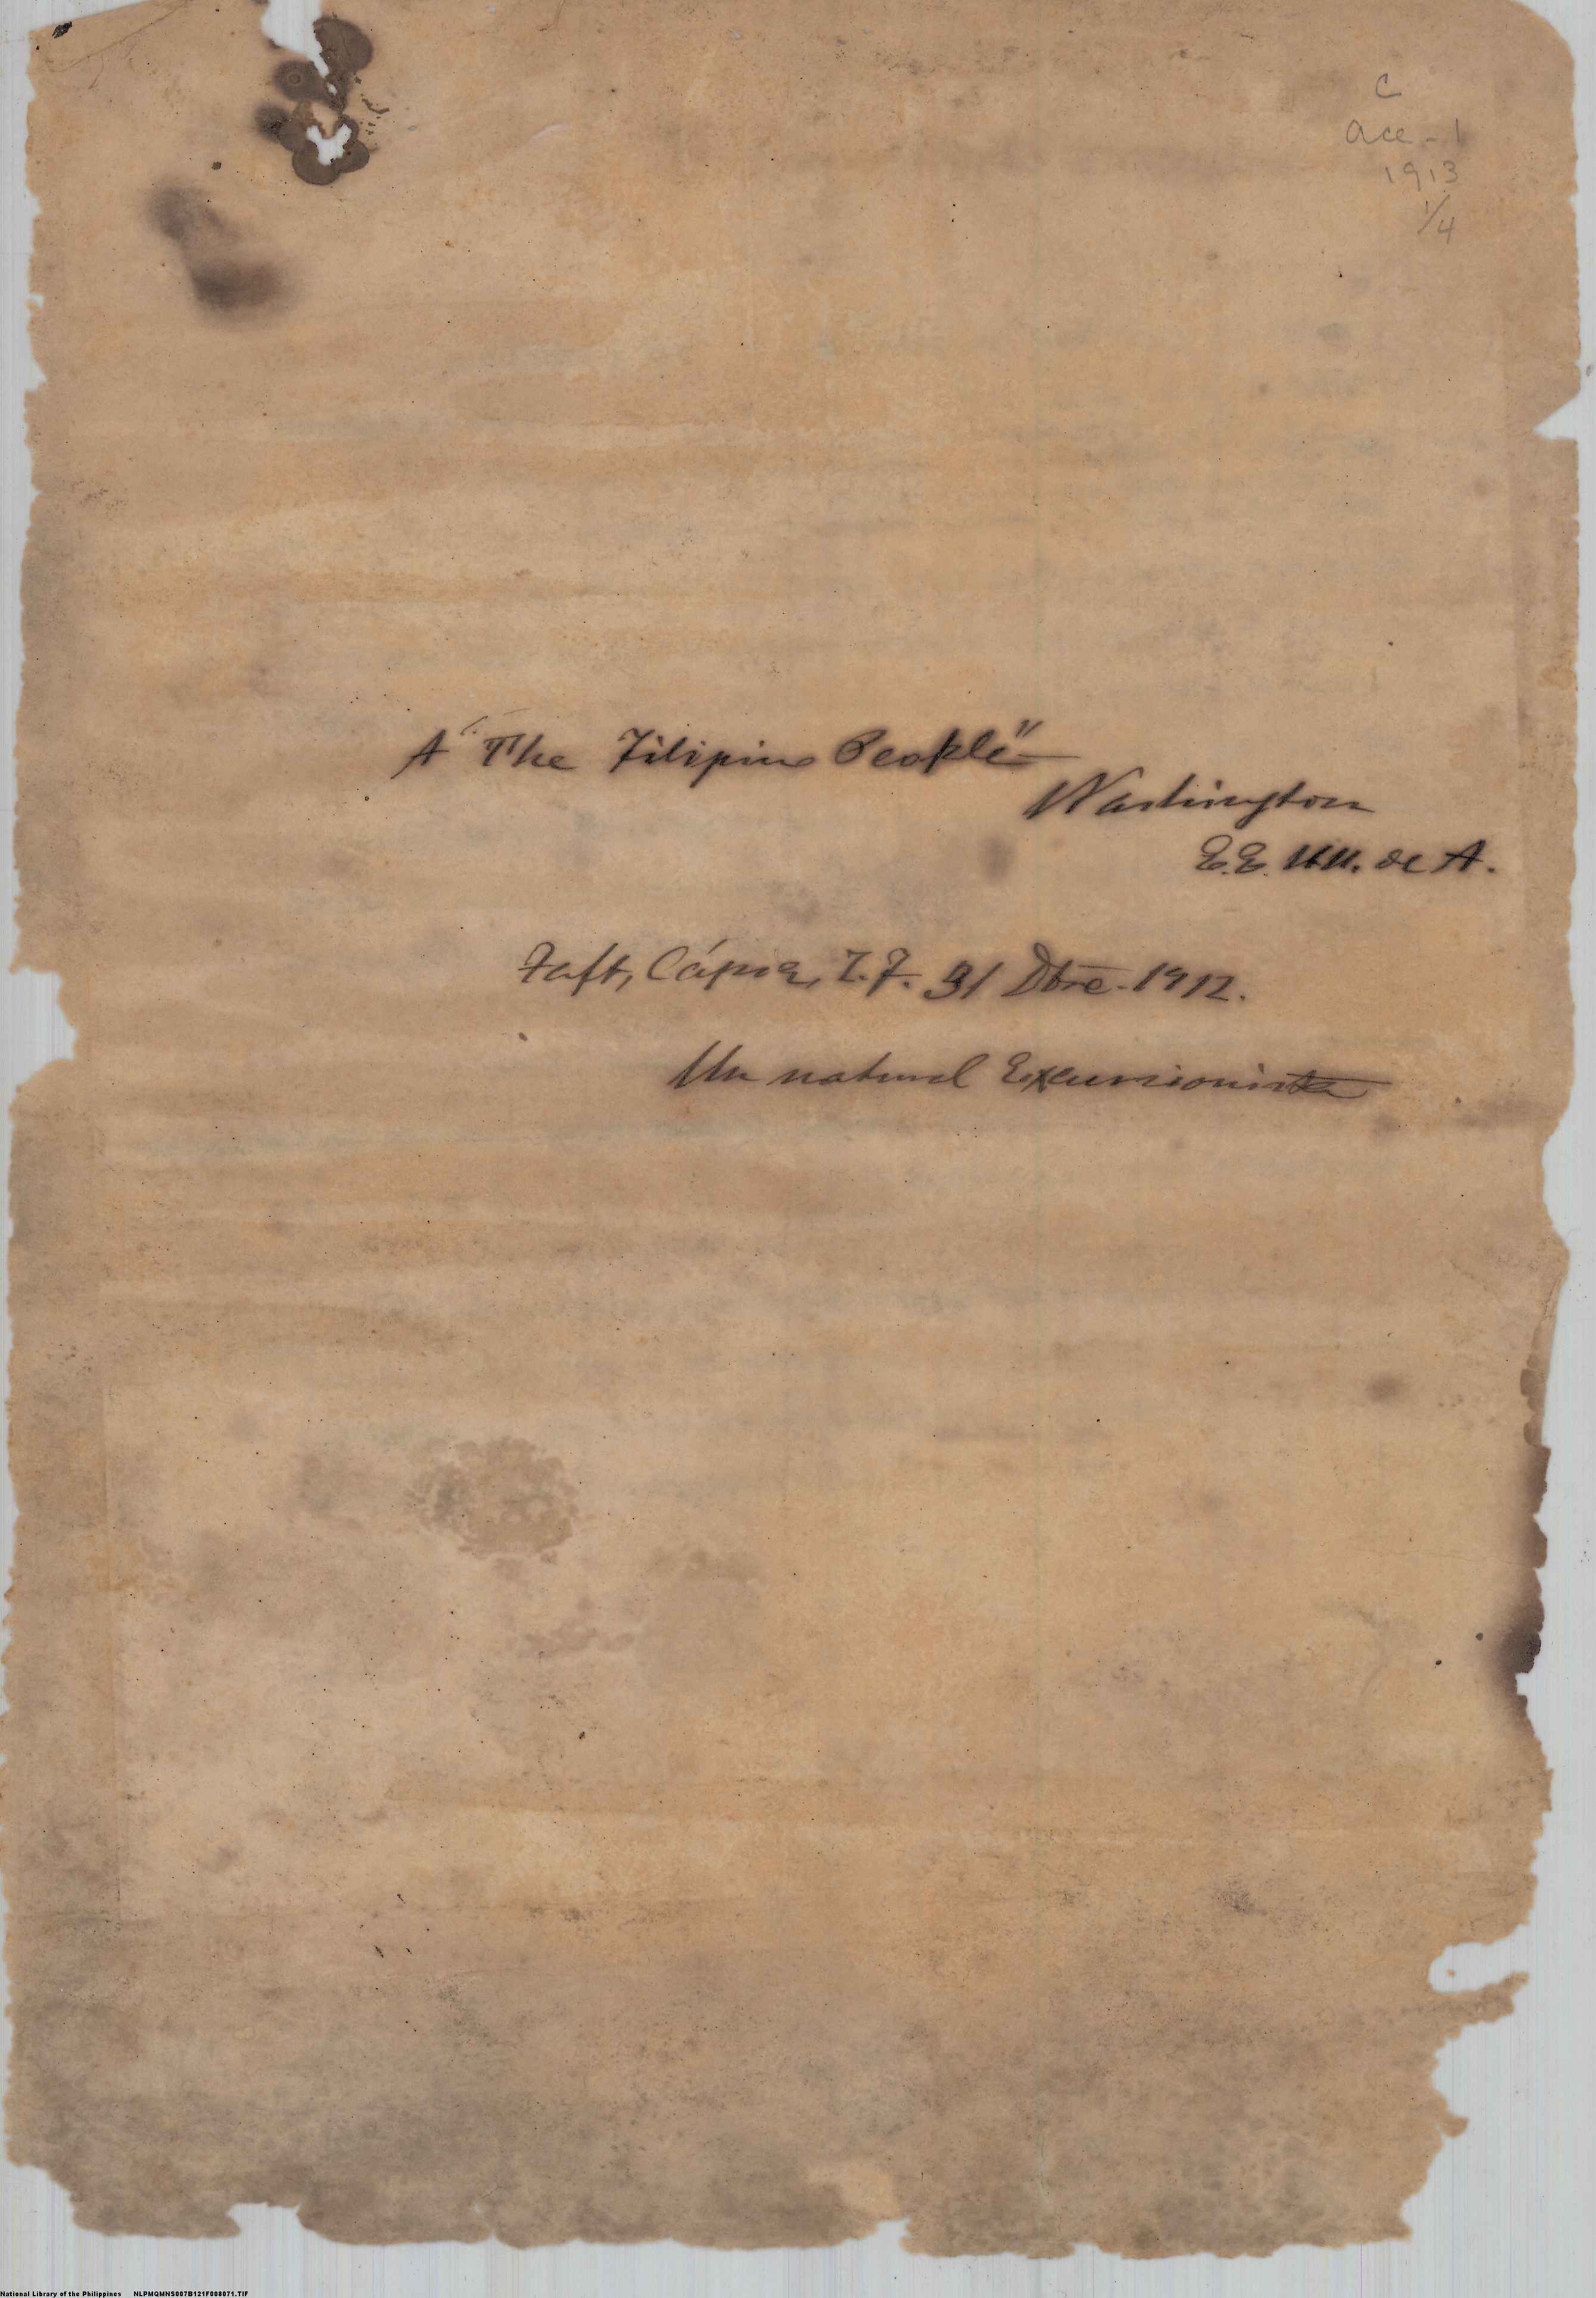 C
ace - 1
1913
1/4
A "The Filipino People"
Washington
E.E. UU. de A.
Taft, Cápiz, I.F. 31 Dbre. 1912.
Un natural Excursionista
National Library of the Philippines NLPMQMNS007B121F008071.TIF